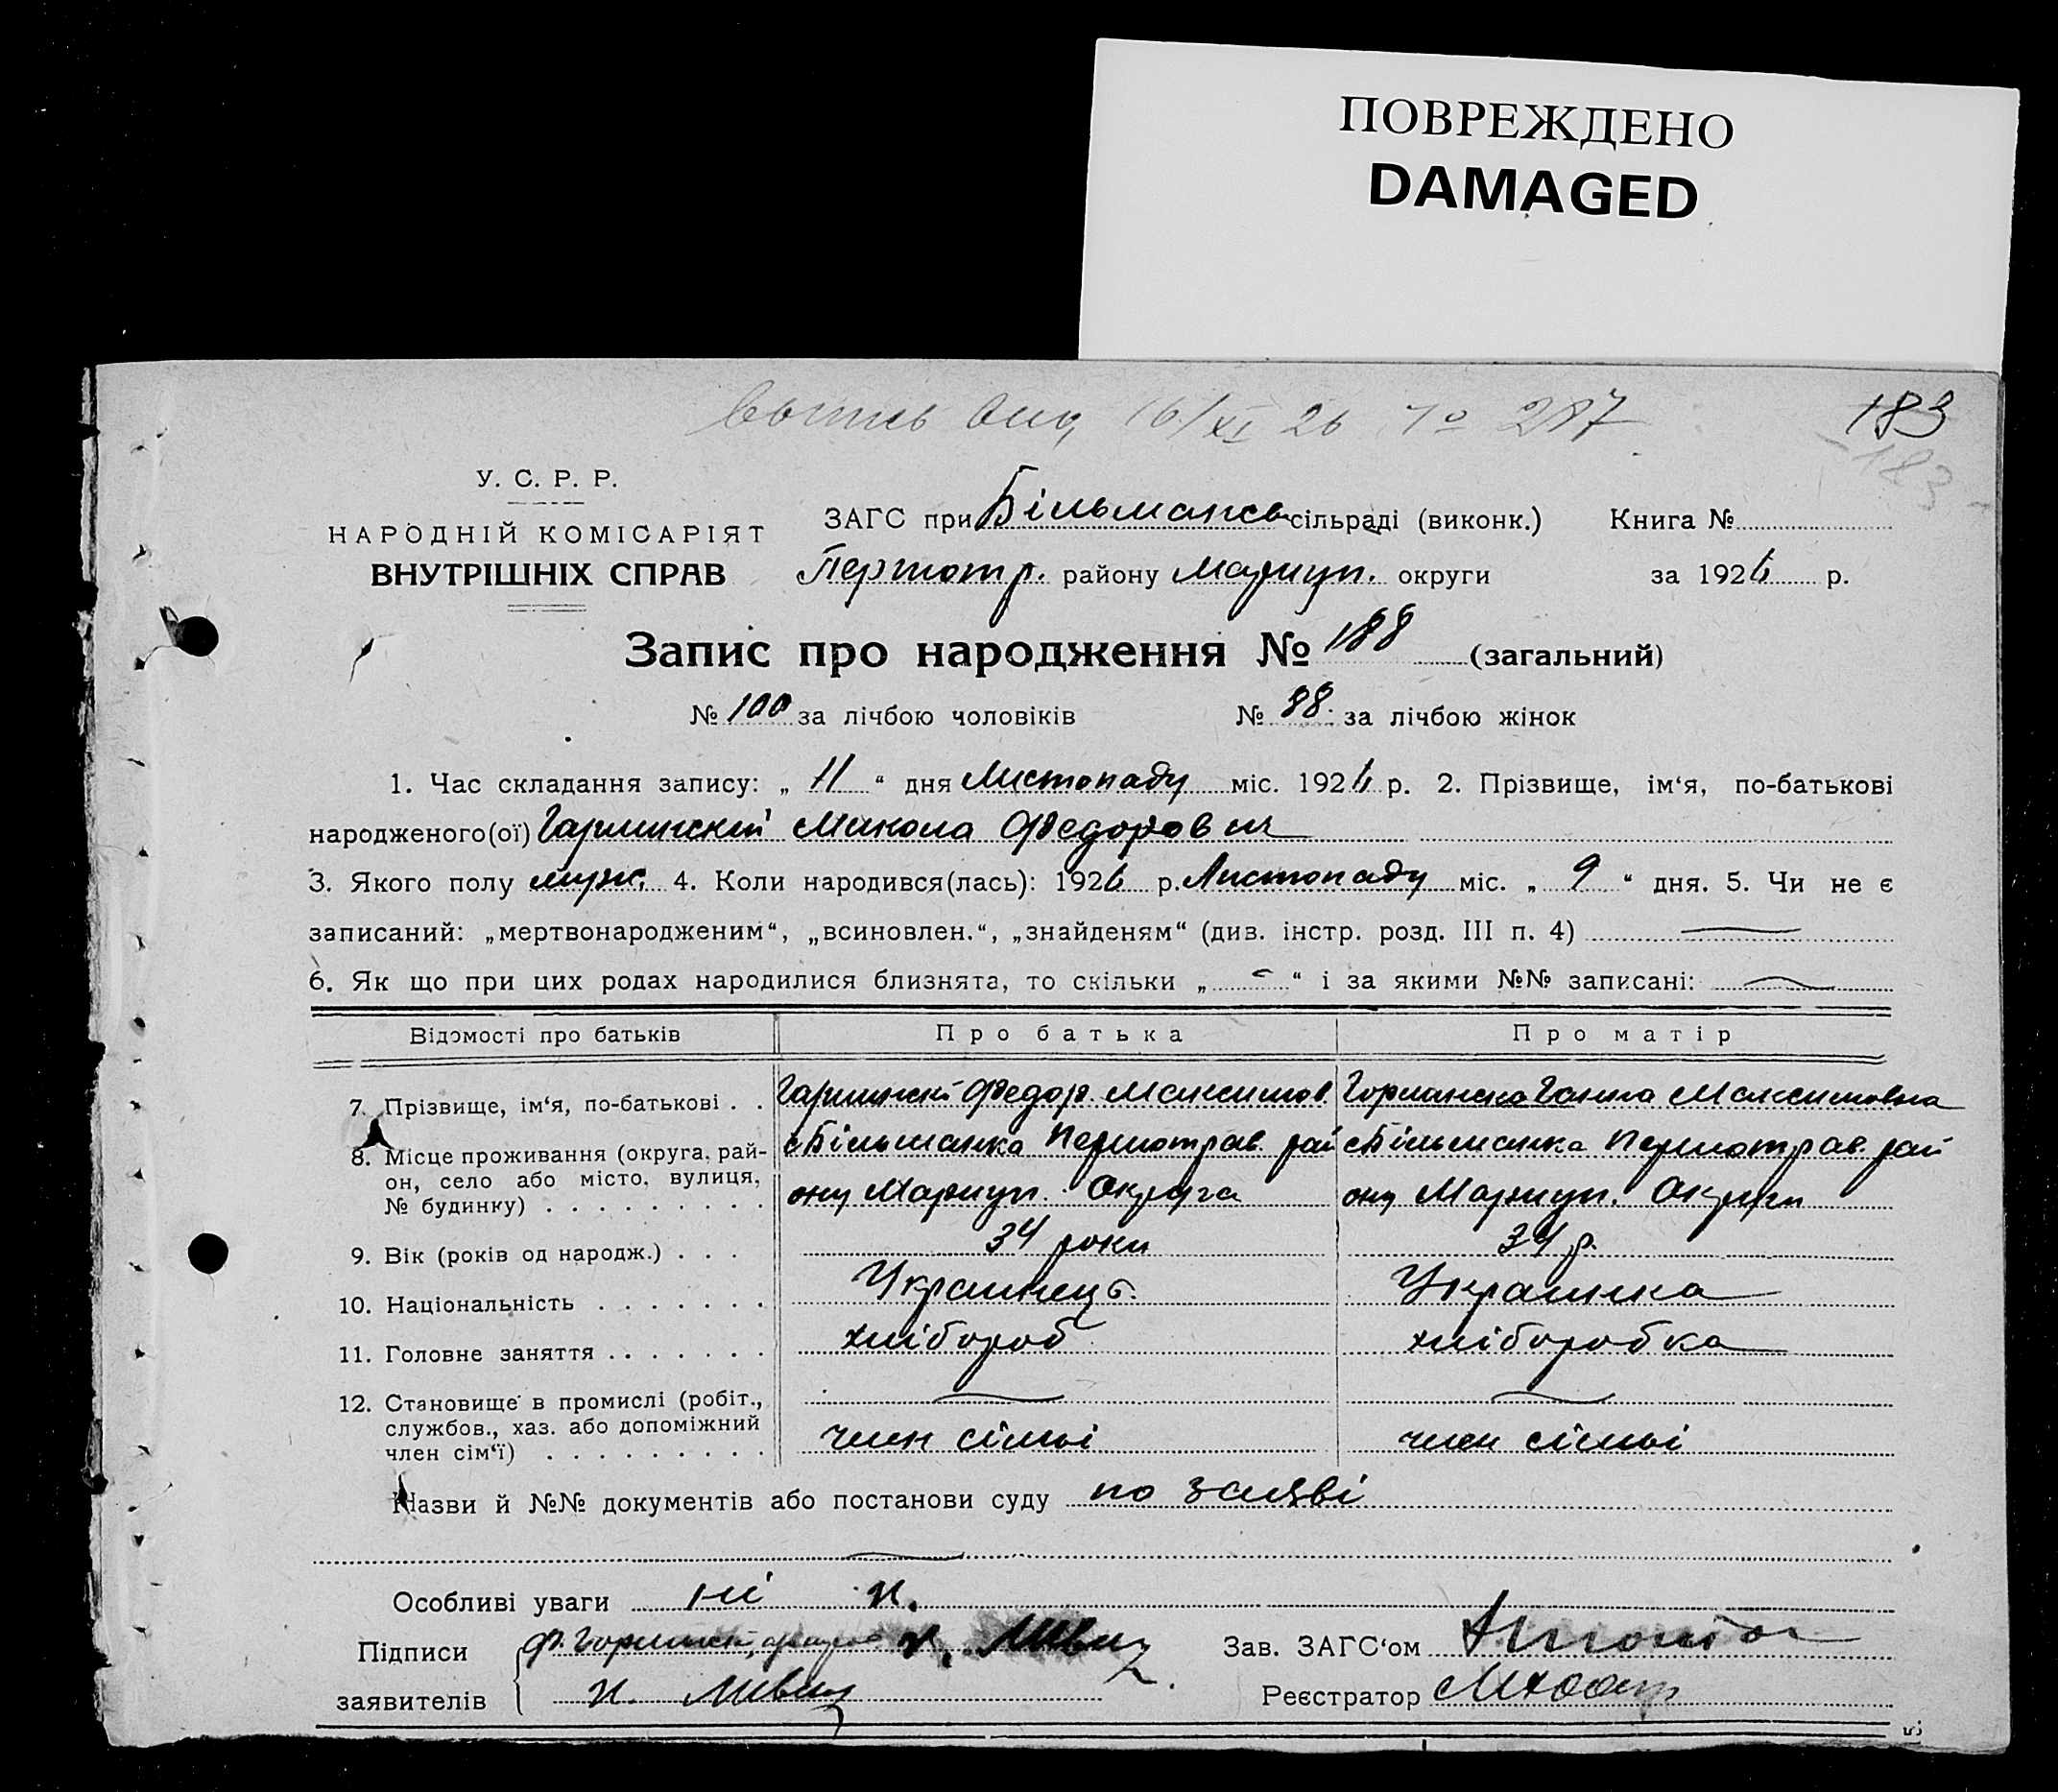 ПОВРЕЖДЕНО
DAMAGED
16/XI 26 287
183
183
У. С. Р. Р.
НАРОДНІЙ КОМІСАРІЯТ
ВНУТРІШНІХ СПРАВ
ЗАГС при Більмансь сільраді (виконк.) Книга №
Першотр. району Маріуп. округи за 1926 р.
Запис про народження № 188 (загальний)
№ 100 за лічбою чоловіків № 88. за лічбою жінок
1. Час складання запису: „ 11 “ дня Листопаду міс. 1926 р. 2. Прізвище, ім‘я, по-батькові
народженого(ої) Микола Федорович
3. Якого полу муж. 4. Коли народився(лась): 1926 р. Листопаду міс. „ 9 “ дня. 5. Чи не є
записаний: „мертвонародженим“, „всиновлен.“, „знайденям“ (див. інстр. розд. III п. 4)
6. Як що при цих родах народилися близнята, то скільки „ - “ і за якими №№ записані:
Відомості про батьків Про батька Про матір
7. Прізвище, ім‘я, по-батькові . . Федор Максимов Ганна Максимовна
8. Місце проживання (округа, рай- с Більманка Першотрав. рай с Більманка Першотрав. рай
он, село або місто, вулиця, ону Маріуп. Округа ону Маріуп. Округи
№ будинку)
9. Вік (років од народж.) . . . 34 роки 34 р.
10. Національність Украинець. Украинка
11. Головне заняття хлібороб хліборобка
12. Становище в промислі (робіт.,
службов., хаз. або допоміжний
член сім‘ї) член сімьі член сімьі
Назви й №№ документів або постанови суду по заяві
Особливі уваги ні
Підписи
заявителів
Зав. ЗАГС‘ом
Реєстратор